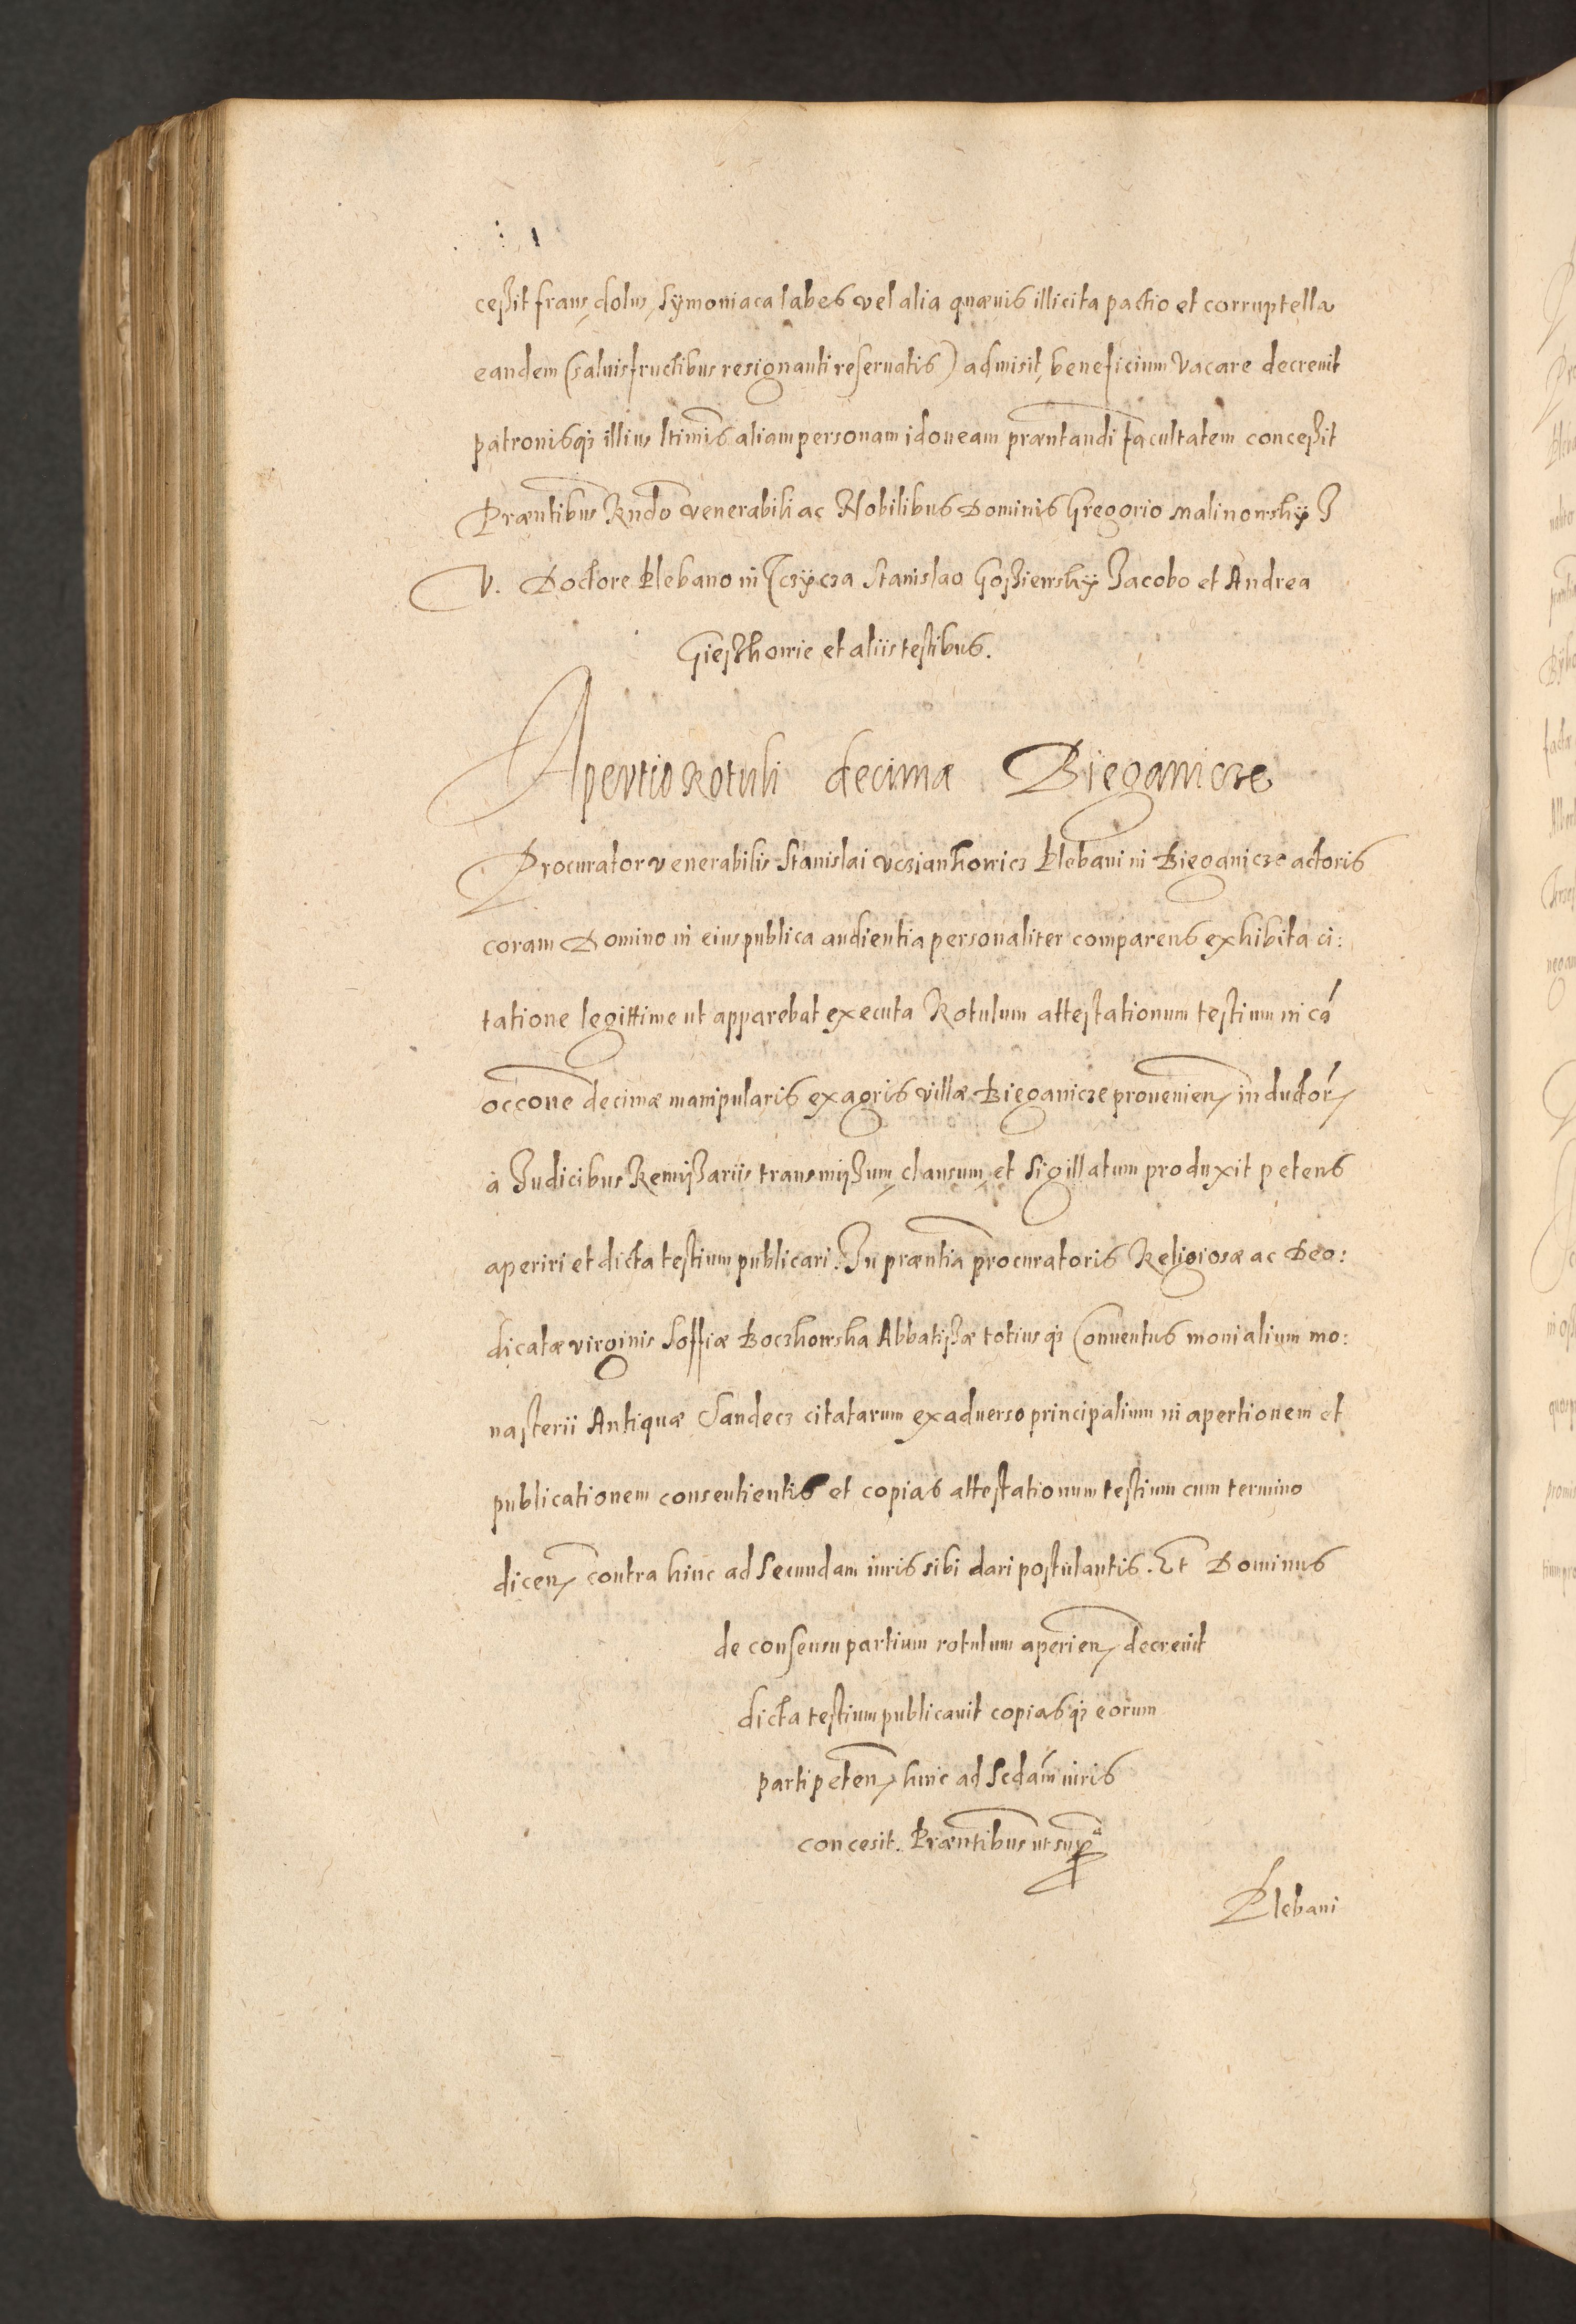 ceßit fraus, dolus, Symoniaca labes vel alia quæuis illicita pactio et corruptella
eandem (saluis fructibus resignanti reseruatis) admisit, beneficium vacare decreuit
patronisq3 illius ltimis aliam personam idoneam præntandi facultatem conceßit
Præntibus Rndo venerabili ac Nobilibus Dominis Gregorio Malinowskÿ J
V. Doctore Plebano in Czÿcza Stanislao Goßiewskÿ Jacobo et Andrea
et aliis testibus.
Apertio Rotuli decimæ Bieganicze
Procurator venerabilis Stanislai Vcziankowicz Plebani in Bieganicze actoris
coram Domino in eius publica audientia personaliter comparens exhibita ci:
tatione legittime ut apparebat executa Rotulum attestationum testium in cá
occone decimæ manipularis ex agris villæ Bieganicze prouenien. inductor.
à Judicibus Remißariis transmißum, clausum, et sigillatum produxit petens
aperiri et dicta testium publicari. In præntia procuratoris Religiosæ ac Deo:
dicatæ virginis Soffiæ Boczkowska Abbatißæ totiusq3 Conuentus monialium mo:
nasterii Antiquæ Sandecz citatarum ex aduerso principalium in apertionem et
publicationem consentientis et copias attestationum testium cum termino
dicen. contra hinc ad Secundam iuris sibi dari postulantis. Et Dominus
de consensu partium rotulum aperien. decreuit
dicta testium publicauit copiasq3 eorum
parti peten. hinc ad Scdam iuris
concesit. Præntibus ut supra
Plebani